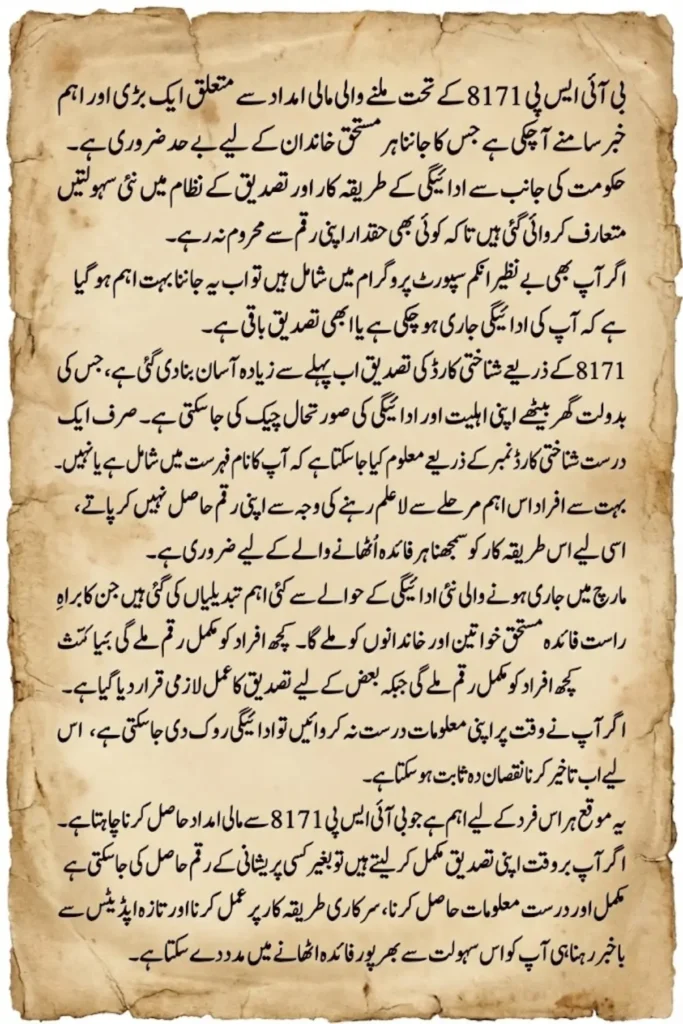 بی آئی ایس پی 8171 کے تحت ملنے والی مالی امداد سے متعلق ایک بڑی اور اہم
خبر سامنے آ چکی ہے جس کا جاننا ہر مستحق خاندان کے لیے بے حد ضروری ہے۔
حکومت کی جانب سے ادائیگی کے طریقہ کار اور تصدیق کے نظام میں نئی سہولتیں
متعارف کروائی گئی ہیں تاکہ کوئی بھی حقدار اپنی رقم سے محروم نہ رہے۔
اگر آپ بھی بے نظیر انکم سپورٹ پروگرام میں شامل ہیں تو اب یہ جاننا بہت اہم ہو گیا
ہے کہ آپ کی ادائیگی جاری ہو چکی ہے یا ابھی تصدیق باقی ہے۔
8171 کے ذریعے شناختی کارڈ کی تصدیق اب پہلے سے زیادہ آسان بنا دی گئی ہے، جس کی
بدولت گھر بیٹھے اپنی اہلیت اور ادائیگی کی صورتحال چیک کی جا سکتی ہے۔ صرف ایک
درست شناختی کارڈ نمبر کے ذریعے معلوم کیا جا سکتا ہے کہ آپ کا نام فہرست میں شامل ہے یا نہیں۔
بہت سے افراد اس اہم مرحلے سے لاعلم رہنے کی وجہ سے اپنی رقم حاصل نہیں کر پاتے،
اسی لیے اس طریقہ کار کو سمجھنا ہر فائدہ اُٹھانے والے کے لیے ضروری ہے۔
مارچ میں جاری ہونے والی نئی ادائیگی کے حوالے سے کئی اہم تبدیلیاں کی گئی ہیں جن کا براہِ
راست فائدہ مستحق خواتین اور خاندانوں کو ملے گا۔ کچھ افراد کو مکمل رقم ملے گی
کچھ افراد کو مکمل رقم ملے گی جبکہ بعض کے لیے تصدیق کا عمل لازمی قرار دیا گیا ہے۔
اگر آپ نے وقت پر اپنی معلومات درست نہ کروائیں تو ادائیگی روک دی جا سکتی ہے، اس
لیے اب تاخیر کرنا نقصان دہ ثابت ہو سکتا ہے۔
یہ موقع ہر اس فرد کے لیے اہم ہے جو بی آئی ایس پی 8171 سے مالی امداد حاصل کرنا چاہتا ہے۔
اگر آپ بروقت اپنی تصدیق مکمل کر لیتے ہیں تو بغیر کسی پریشانی کے رقم حاصل کی جا سکتی ہے
مکمل اور درست معلومات حاصل کرنا، سرکاری طریقہ کار پر عمل کرنا اور تازہ اپڈیٹس سے
باخبر رہنا ہی آپ کو اس سہولت سے بھرپور فائدہ اٹھانے میں مدد دے سکتا ہے۔